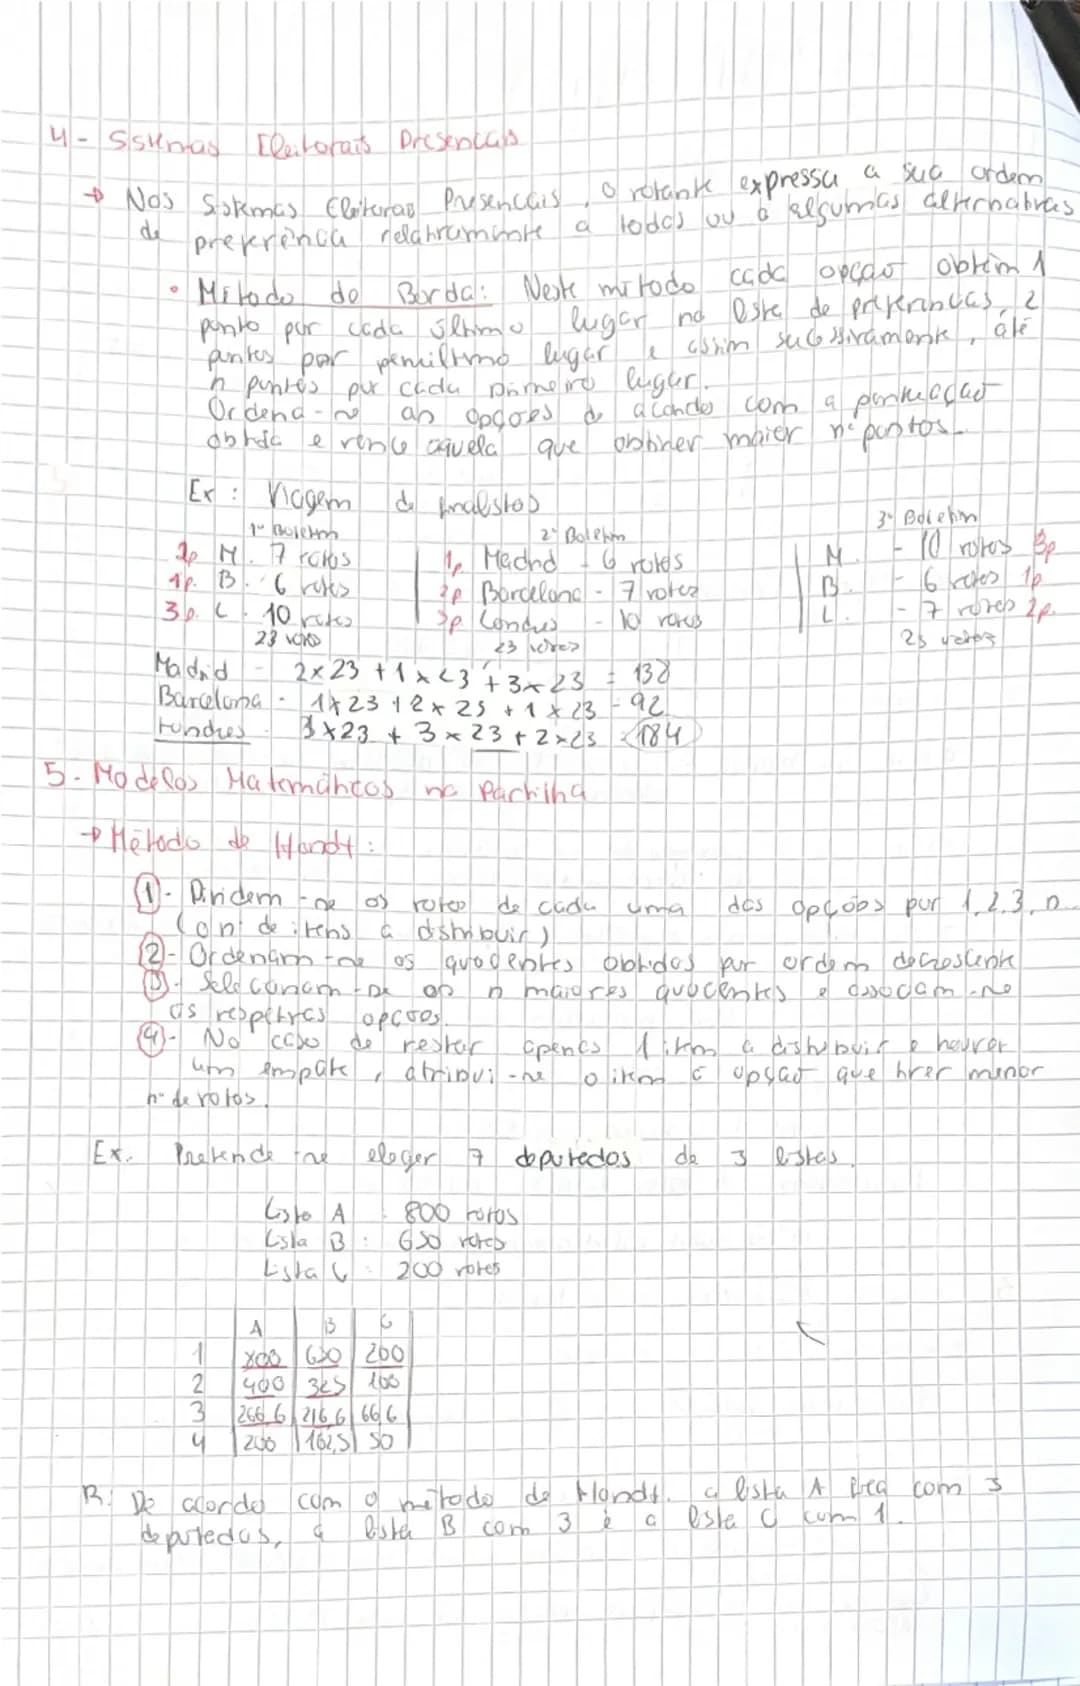 4 - Sistemas Eleitorais Presenciais
→ Nos Sistemas Eleitorais Presenciais, o votante expressa a sua ordem
de preferência relativamente a todas ou a algumas alternativas
• Método de Borda: Neste método cada opção obtém 1
ponto por cada último lugar na lista de preferências, 2
pontos por penúltimo lugar e assim sucessivamente, até
n pontos por cada primeiro lugar.
Ordena-se as opções de acordo com a pontuação
obtida e vence aquela que obtiver maior nº pontos.
Ex: Viagem de finalistas
1º Boletim 2º Boletim 3º Boletim
2p M. 7 votos 1p Madrid - 6 votos M. - 10 votos 3p
1p. B. 6 votos 2p Barcelona - 7 votos B. - 6 votos 1p
3p. L. 10 votos 3p Londres - 10 votos L. - 7 votos 2p.
23 votos 23 votos 23 votos
Madrid - 2x23 + 1x23 + 3x23 = 138
Barcelona - 1x23 + 2x23 + 1x23 - 92
Londres - 3x23 + 3x23 + 2x23 184
5. Modelos Matemáticos na Partilha
→ Método de Hondt:
1 - Dividem-se os votos de cada uma das opções por 1,2,3,n
(o nº de itens a distribuir)
2 - Ordenam-se os quocientes obtidos por ordem decrescente
3 - Selecionam-se os n maiores quocientes e associam-se
às respetivas opções.
4 - No caso de restar apenas 1 item a distribuir e houver
um empate, atribui-se o item à opção que tiver menor
nº de votos.
Ex. Pretende-se eleger 7 deputados de 3 listas.
Lista A : 800 votos
Lista B : 650 votos
Lista C : 200 votos
A B C
1 800 650 200
2 400 325 100
3 266,6 216,6 66,6
4 200 162,5 50
R: De acordo com o método de Hondt, a lista A fica com 3
deputados, a lista B com 3 e a lista C com 1.